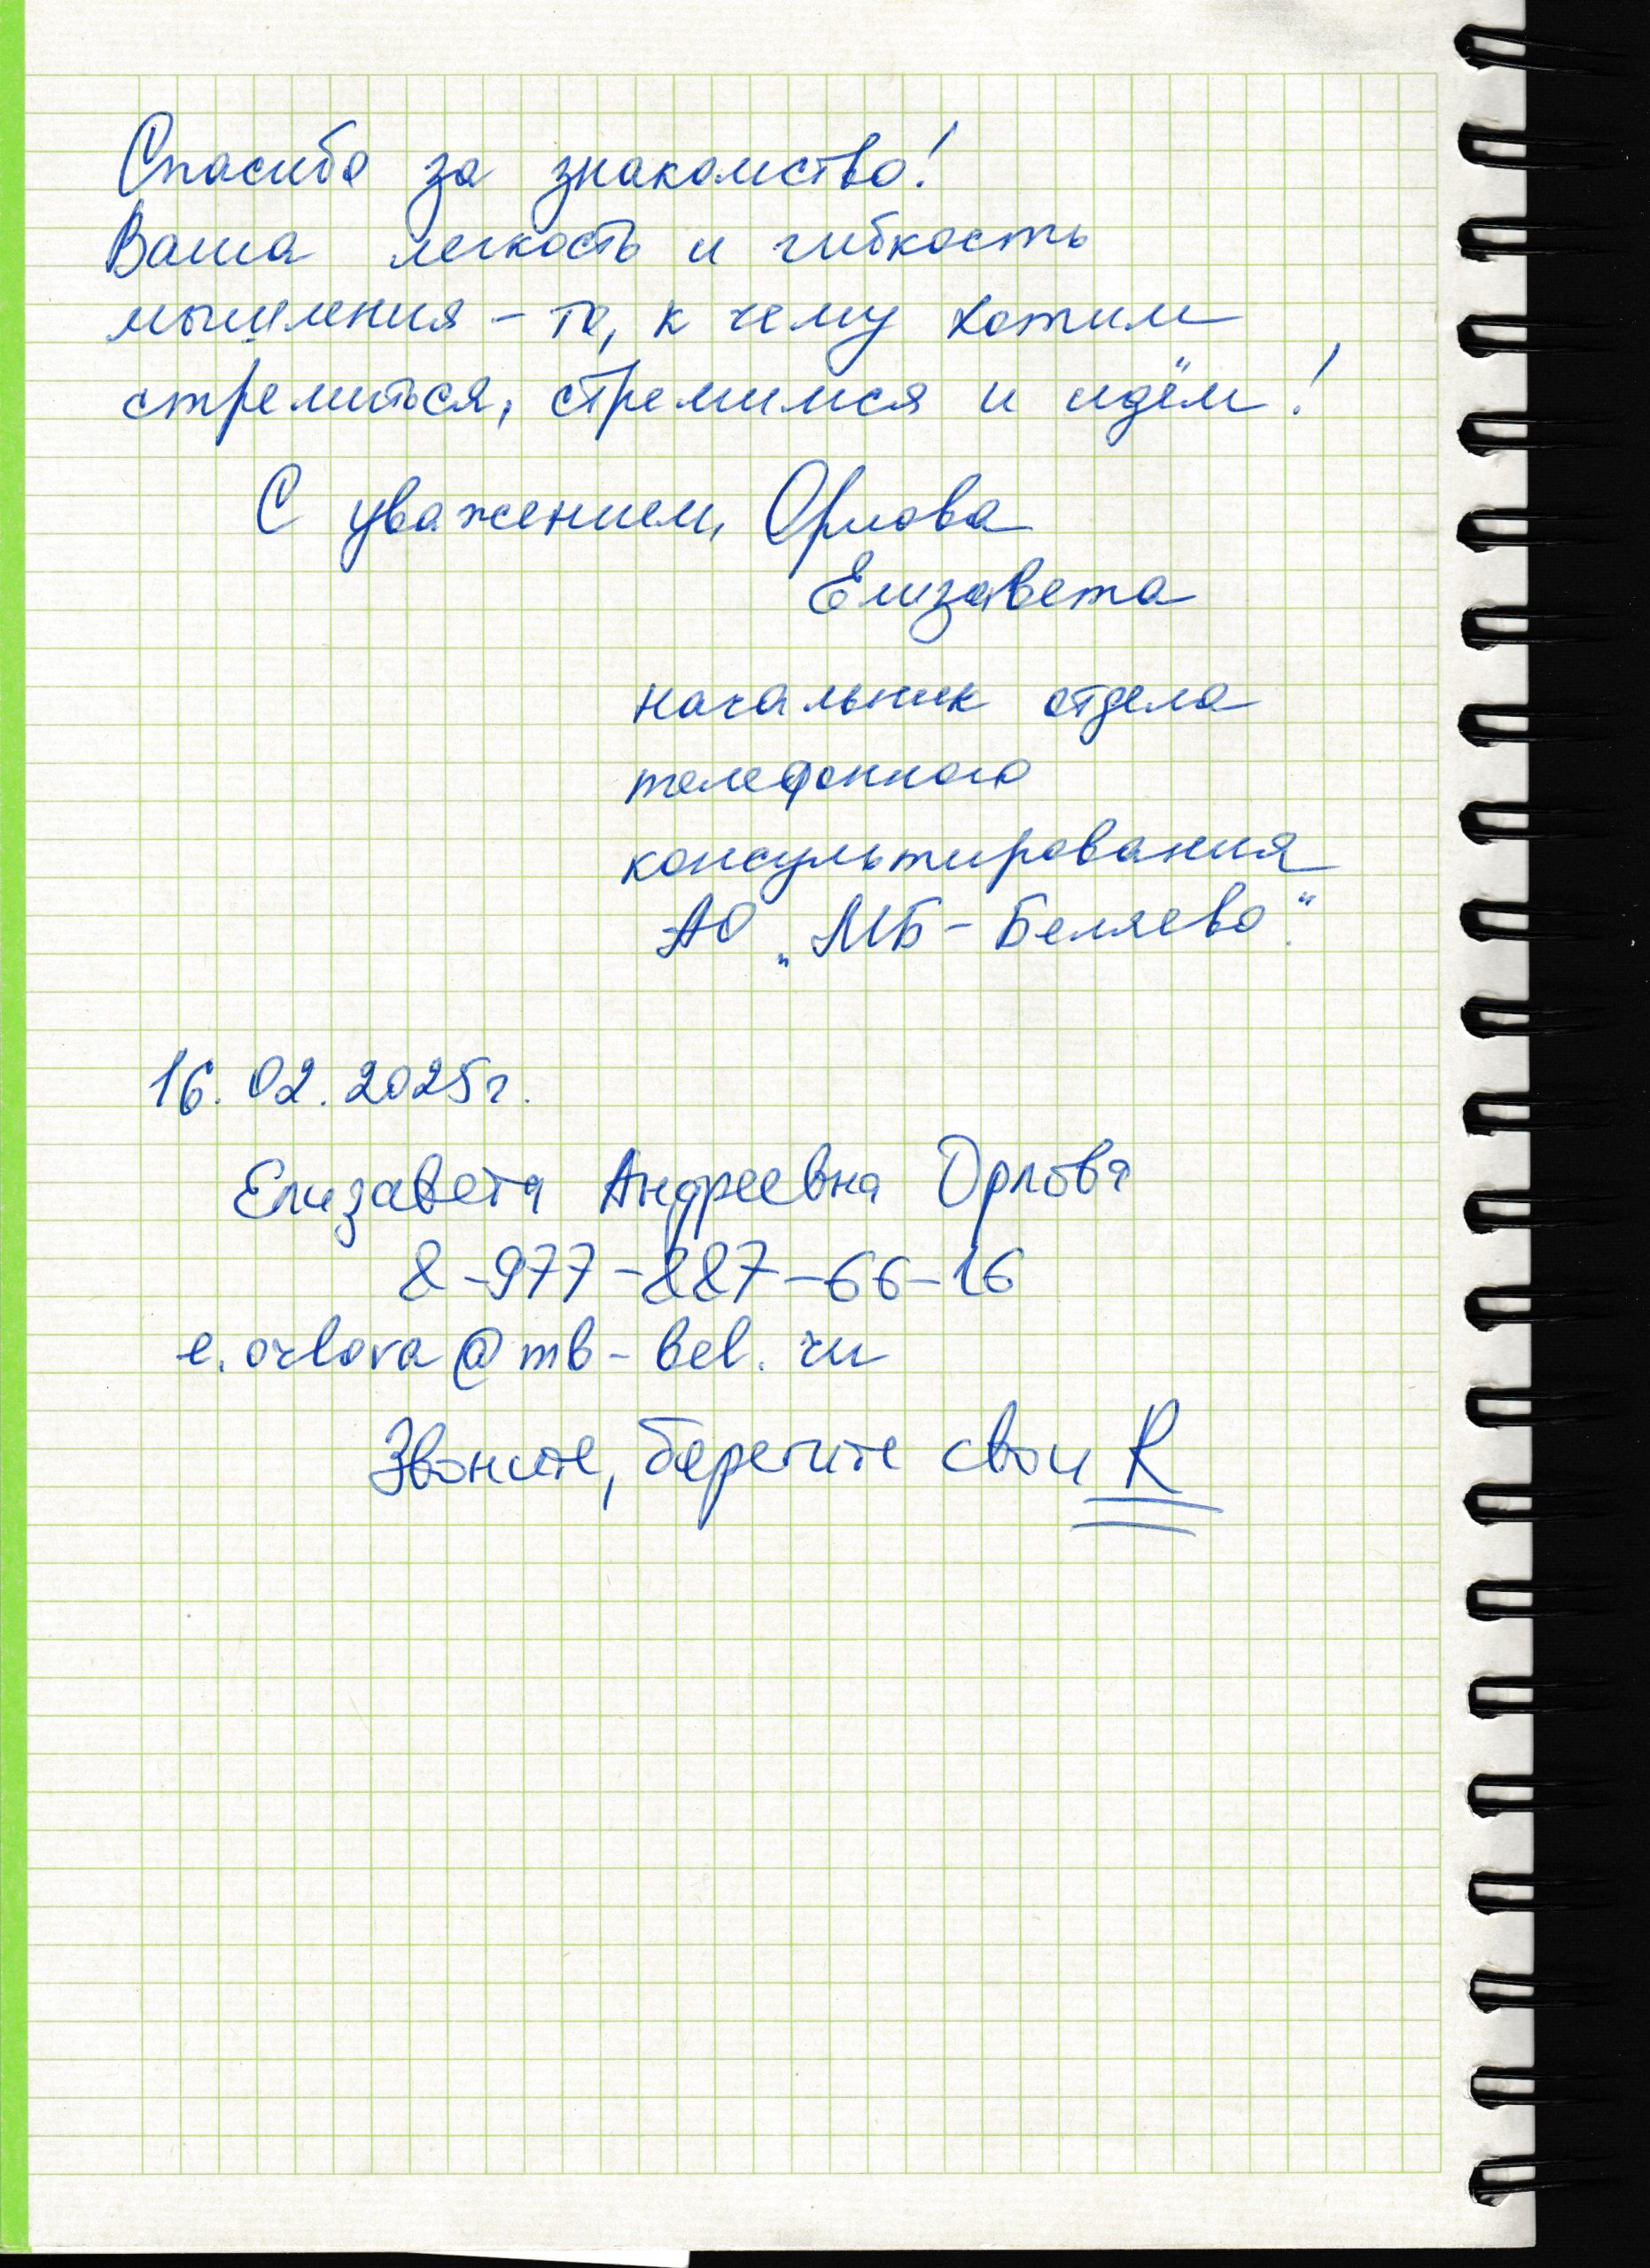 Спасибо за знакомство!
Ваша легкость и гибкость
мышления – то, к чему хотим
стремиться, стремимся и идём!
С уважением, Орлова
Елизавета
начальник отдела
телефонного
консультирования
АО „МБ – Беляево“.
16.02.2025г.
Елизавета Андреевна Орлова
8-977-887-66-16
e.orlova@mb-bel.ru
Звоните, берегите свои R